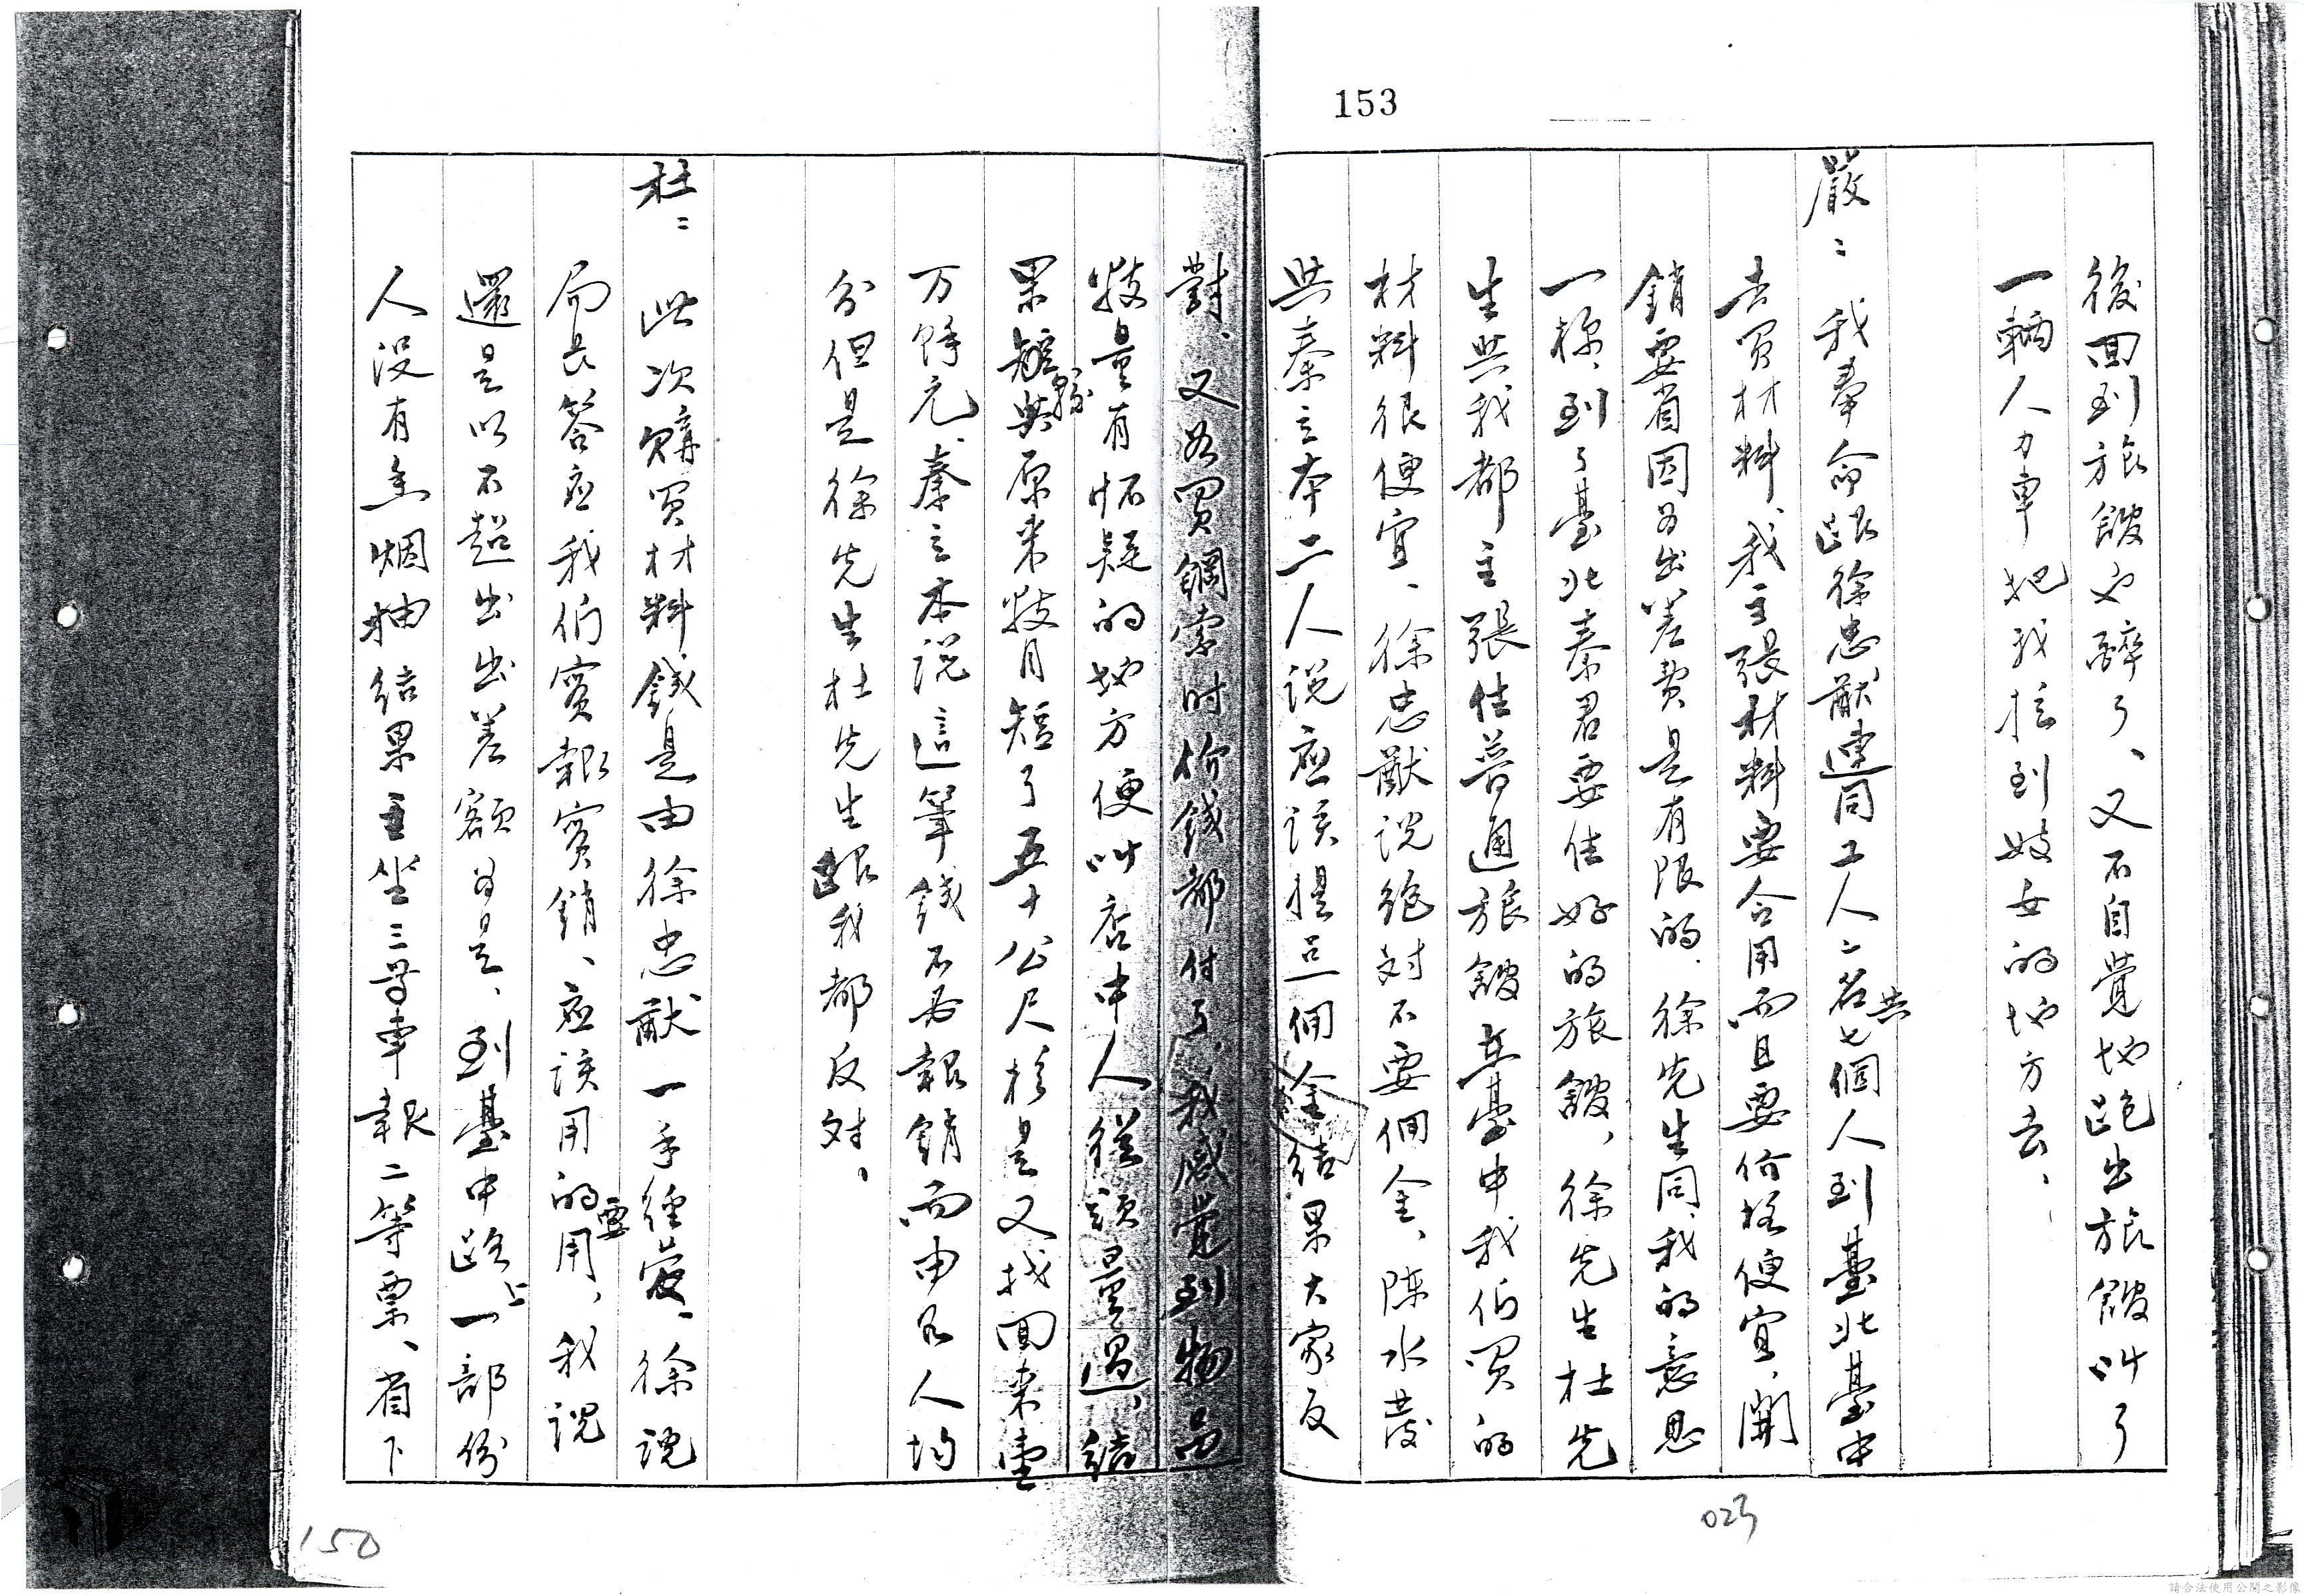 153
後回到旅館又醉了、又不自覺地跑出旅館叫了
一輛人力車把我拉到妓女的地方去、
嚴：我奉命跟徐忠猷連同工人二名共七個人到臺北臺中
去買材料、我主張材料要合用而且要价格便宜、開
銷要省因为出差費是有限的、徐先生同我的意思
一樣、到了臺北秦君要住好的旅館、徐先生杜先
生與我都主張住普通旅館在臺中我们買的
材料很便宜、徐忠猷説絶对不要佣金、陳水茂
與秦立本二人説应該提一佣金結果大家反
對、又为買鋼索时价錢都付了、我感覺到物品
數量有怀疑的地方便叫店中人從頭量過、結
果發與原來數目短了五十公尺於是又找回來壹
万餘元、秦立本説這筆錢不必報銷而由各人均
分但是徐先生杜先生跟我都反对、
杜：此次購買材料錢是由徐忠猷一手經營、徐説
局長答应我们實報實銷、应該用的要用、我説
還是以不超出出差額为是、到臺中路上一部份
人没有烟抽結果主坐三等車報二等票、省下
023
150
請合法使用公開之影像